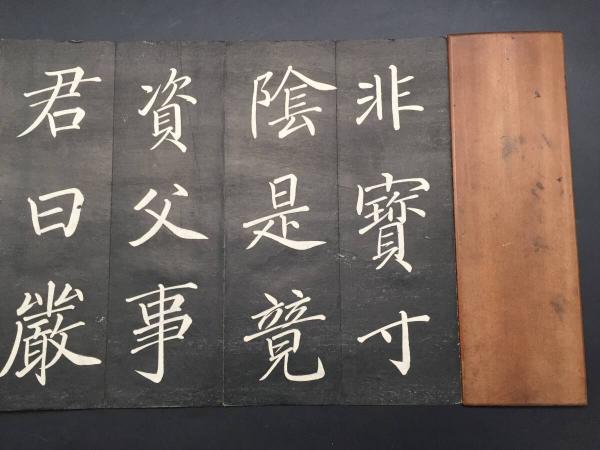 非寶寸
陰是竟
資父事
君曰嚴